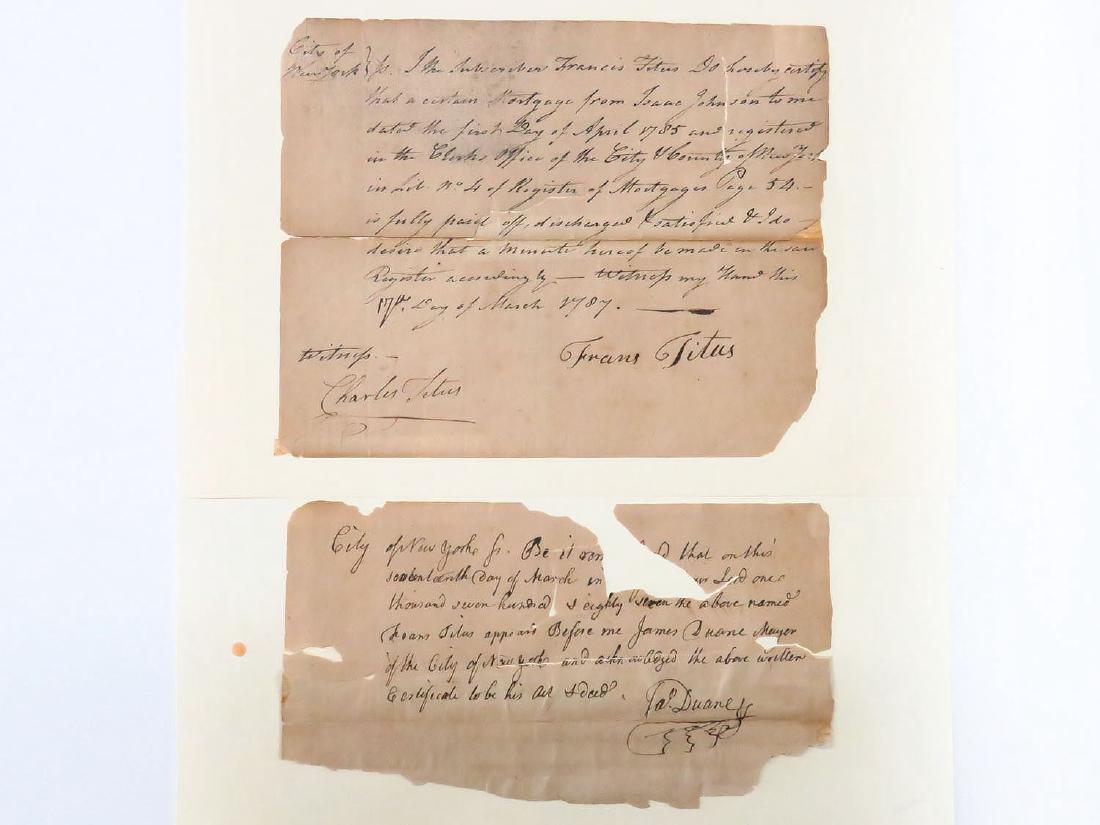 City of
New York } ss. I the Subscriber Francis Titus Do hereby certify
that a certain Mortgage from Isaac Johnson to me
dated the first Day of April 1785 and registered
in the Clerks Office of the City & County of New York
in Lib. No. 4 of Register of Mortgages Page 54.—
is fully paid off, discharged & satisfied & I do—
desire that a Minute hereof be made in the said
Register accordingly — Witness my Hand this
17th. Day of March 1787. —
Witness.—
Frans Titus
Charles Titus
City of New York ss. Be it that on this
seventeenth Day of March in our Lord one
thousand seven hundred & eighty seven the above named
Frans Titus appears Before me James Duane Mayor
of the City of New York and acknowledged the above written
Certificate to be his act & deed.
Jas. Duane